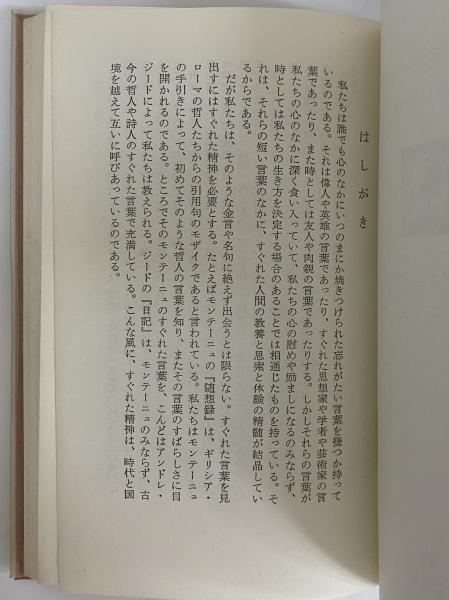 はしがき
私たちは誰でも心のなかにいつのまにか焼きつけられた忘れがたい言葉を幾つか持って
いるのである。それは偉人や英雄の言葉であったり、すぐれた思想家や学者や芸術家の言
葉であったり、また時としては友人や肉親の言葉であったりする。しかしそれらの言葉が
私たちの心のなかに深く食い入っていて、私たちの心の慰めや励ましになるのみならず、
時としては私たちの生き方を決定する場合のあることでは相通じたものを持っている。そ
れは、それらの短い言葉のなかに、すぐれた人間の教養と思索と体験の精髄が結晶してい
るからである。
だが私たちは、そのような金言や名句に絶えず出会うとは限らない。すぐれた言葉を見
出すにはすぐれた精神を必要とする。たとえばモンテーニュの『随想録』は、ギリシア・
ローマの哲人たちからの引用句のモザイクであると言われている。私たちはモンテーニュ
の手引きによって、初めてそのような哲人の言葉を知り、またその言葉のすばらしさに目
を開かれるのである。ところでそのモンテーニュのすぐれた言葉を、こんどはアンドレ・
ジードによって私たちは教えられる。ジードの『日記』は、モンテーニュのみならず、古
今の哲人や詩人のすぐれた言葉で充満している。こんな風に、すぐれた精神は、時代と国
境を越えて互いに呼びあっているのである。